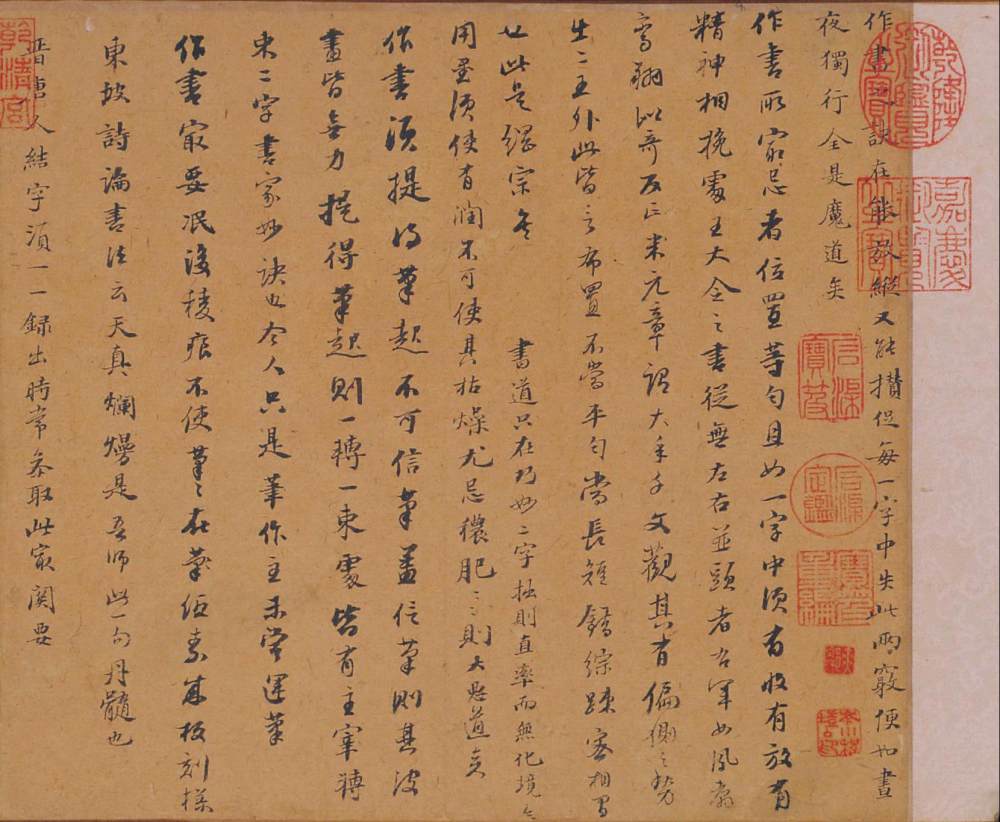 作書之訣在能放縱又能攢促每一字中失此兩竅便如晝
夜獨行全是魔道矣
作書所最忌者位置等勻且如一字中須有收有放有
精神相挽處王大令之書從無左右並頭者右軍如鳳翥
鸞翔似奇反正米元章謂大年千文觀其有偏側之勢
出二王外此皆言布置不當平勻當長短錯綜疎密相間
也此是
書道只在巧妙二字拙則直率而無化境矣
用墨須使有潤不可使其枯燥尤忌穠肥〻則大惡道矣
作書須提得筆起不可信筆蓋信筆則其波
畫皆無力提得筆起則一轉一束處皆有主宰轉
束二字書家妙訣也今人只是筆作主未嘗運筆
作書最要泯沒稜痕不使筆〻在紙素成板刻樣
東坡詩論書法云天真爛熳是吾師此一句丹髓也
晉唐人結字須一一録出時常參取此最関要
乾隆御覽之寶
嘉慶御覽之寶
石渠寶笈
石渠定鑑
寶笈重編
乾清宮